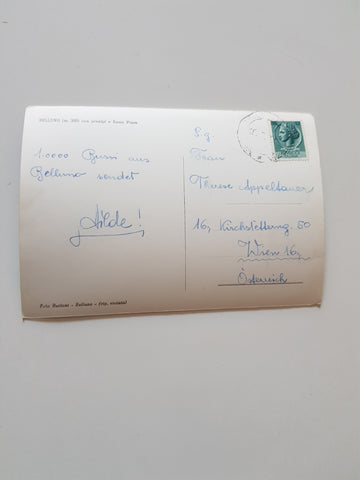 BELLUNO (m. 389) con prealpi e fiume Piave
1.0000 Bussi aus
Belluno sendet
Hilde!
S.g.
Frau
Therese Appeltauer
16, Kirchstetterng. 50
Wien 16,
Österreich
Foto Burloni - Belluno - (rip. vietata)